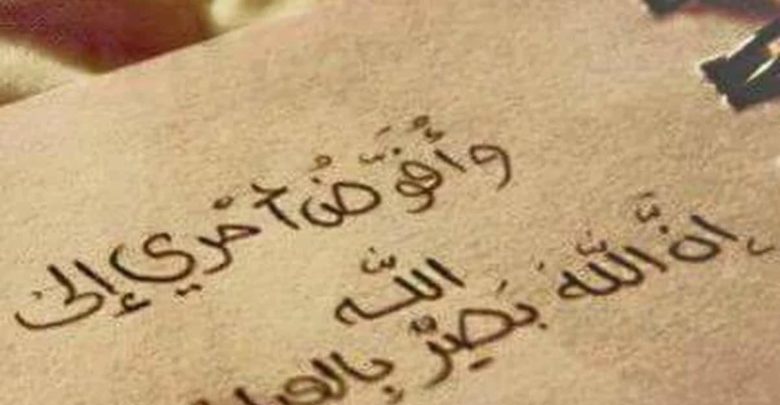 وَأُفَوِّضُ أَمْرِي إِلَى
اللَّه
إِنَّ اللَّهَ بَصِيرٌ